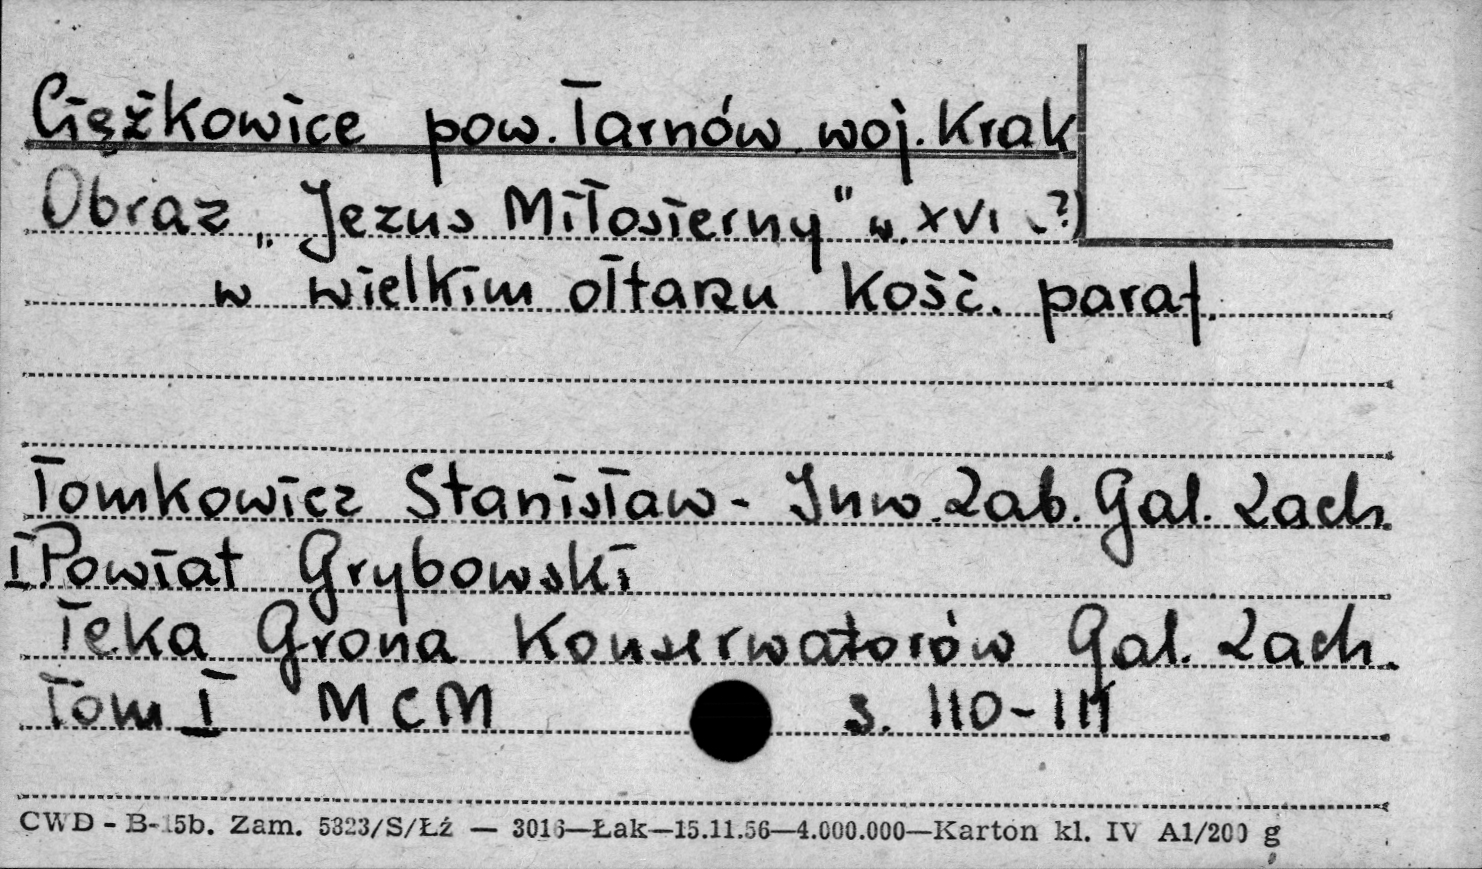 Ciężkowice pow. Tarnów woj. Krak
Obraz „Jezus Miłosierny" w. XVI (?)
w wielkim ołtarzu kość. paraf.
Tomkowicz Stanisław - Inw. Zab. Gal. Zach.
I Powiat Grybowski
Teka Grona Konserwatorów Gal. Zach.
Tom I MCM s. 110-111
CWD - B-15b. Zam. 5323/S/Łź — 3016—Łak—15.11.56—4.000.000—Karton kl. IV A1/200 g